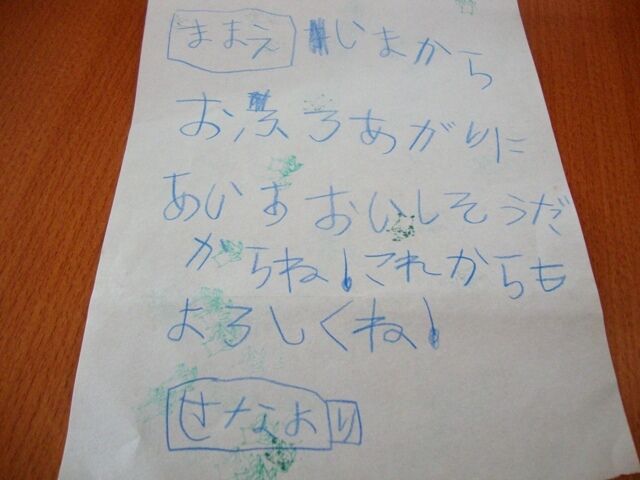 ままえ いまから
おふろあがりに
あいすおいしそうだ
からね!これからも
よろしくね!
せなより